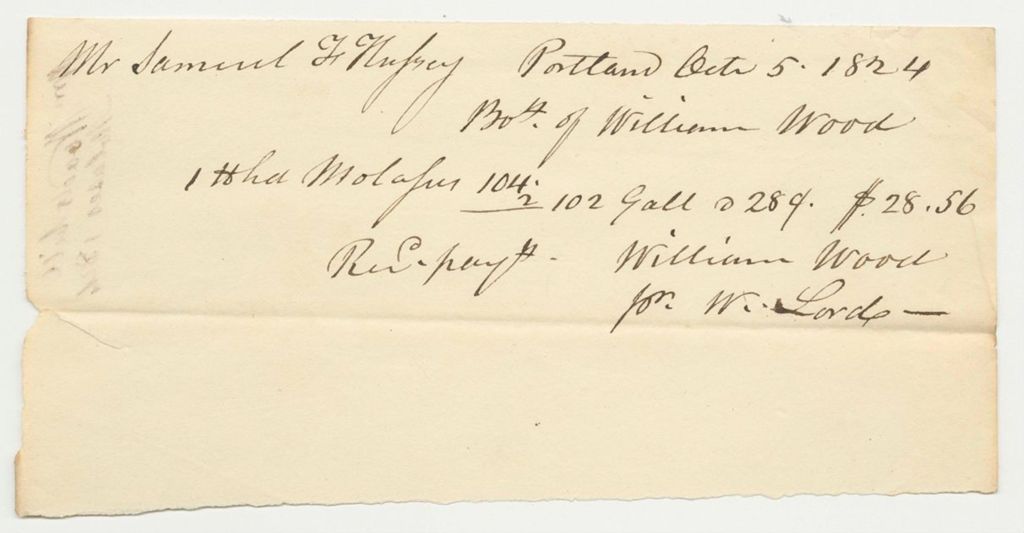 Mr Samuel F Hussey Portland Octr 5. 1824
Bot. of William Wood
1 Hhd Molasses 104.
2 102 Gall a 28¢. $.28.56
Recd. payt. William Wood
pr. W. Lord —